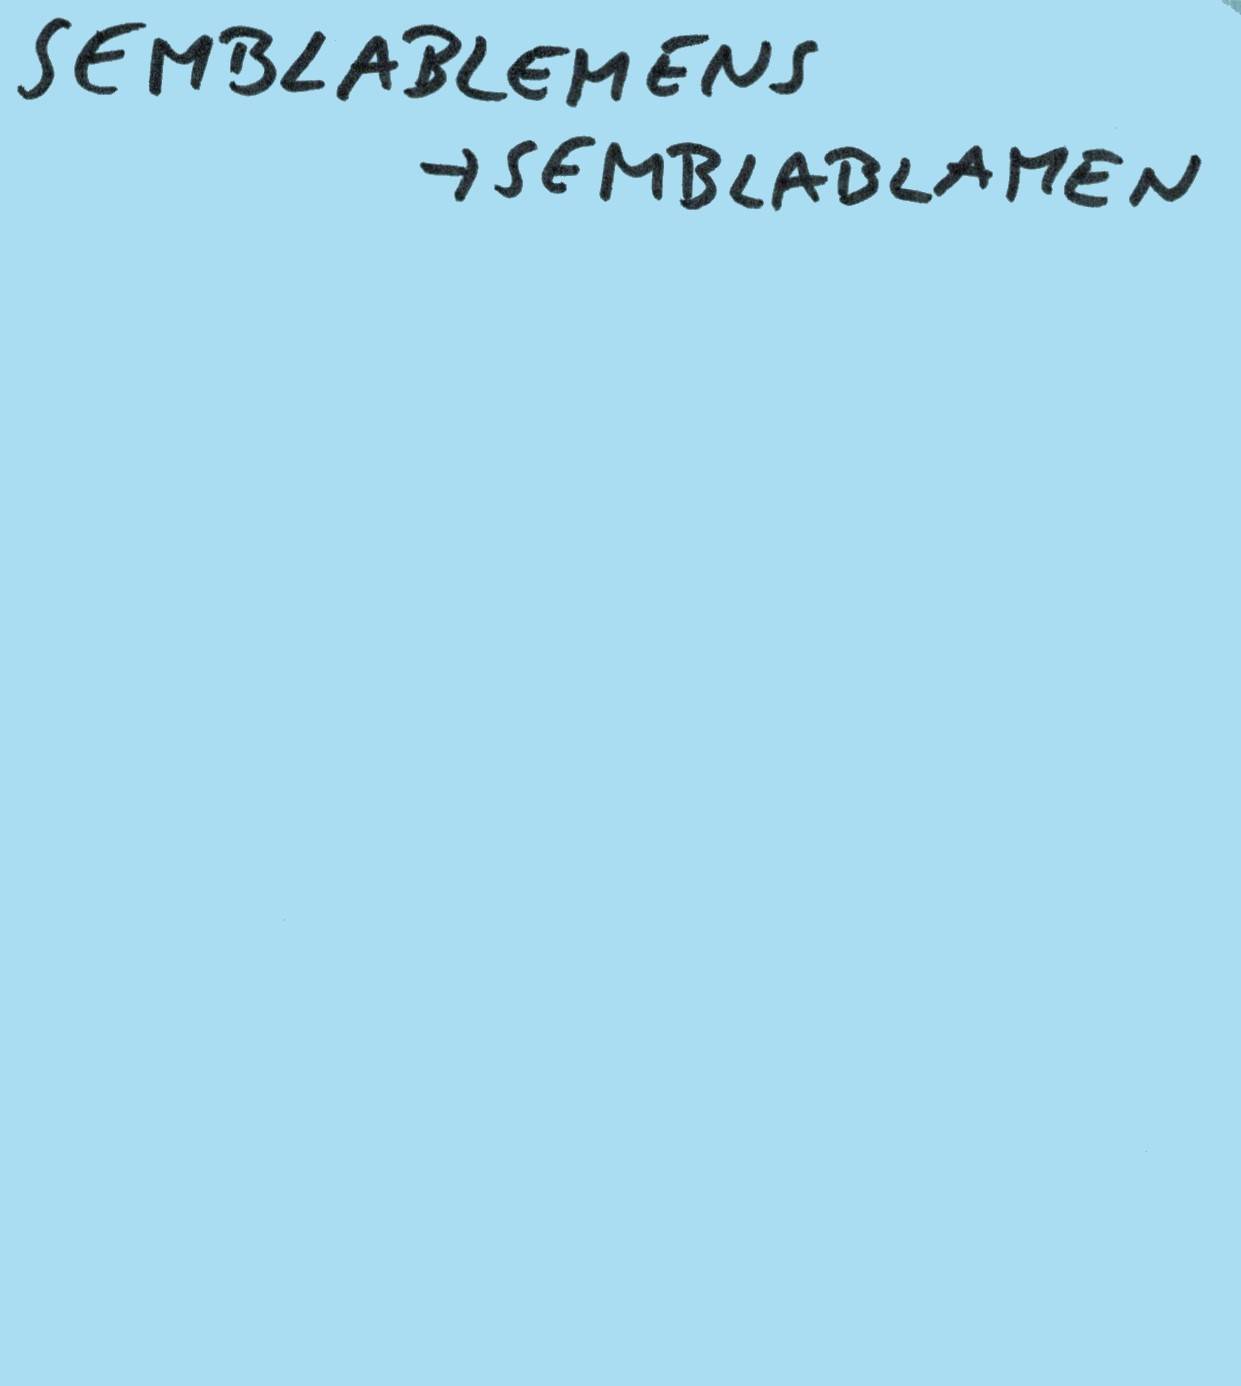 SEMBLABLEMENS
→SEMBLABLAMEN